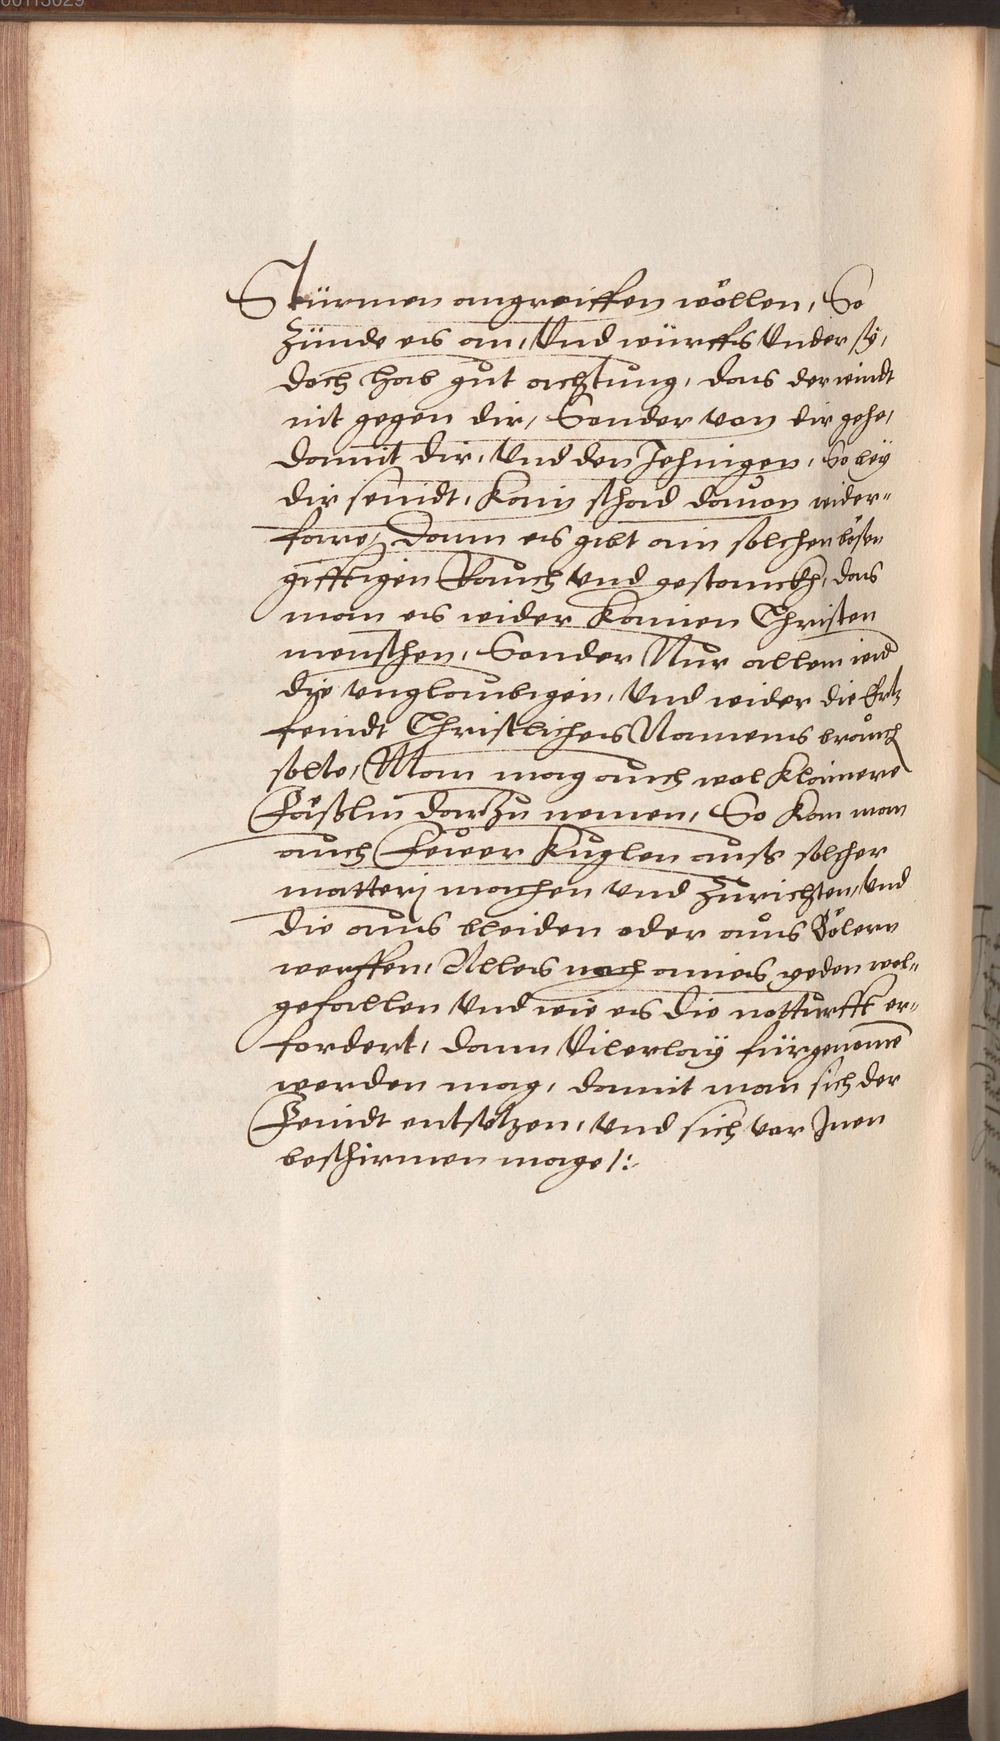 00113029
Stürmen angreiffen wöllen, So
Zünde es an, Vnd würffs Vnder sÿ,
doch hab gut achtung, das der windt
nit gegen dir, Sonder von dir gehe,
damit dir, Vnd den Jehnigen, So beÿ
dir seindt, kain schad dauon wider-
fare, dann es gibt ain solchen bösen
gifftigen Rauch vnd gestanckh, das
man es wider kainen Christen
menschen, Sonder Nur allein wid
die vnglaubigen, Vnd wider die Ertz
feindt Christliches Namens brauch
solte, Man mag auch wol klainere
Fäßlin darzu nemen, So kan man
auch Feüwer kuglen auß solcher
matterj machen vnd Zurichten, vnd
die aus bleiden oder aus Bölern
werffen, Alles nach aines yeden wol-
gefallen Vnd wie es die notturfft er-
fordert, dann Vilerlaÿ fürgenomē
werden mag, damit man sich der
Feindt entsetzen, vnd sich vor Inen
beschirmen mage /: